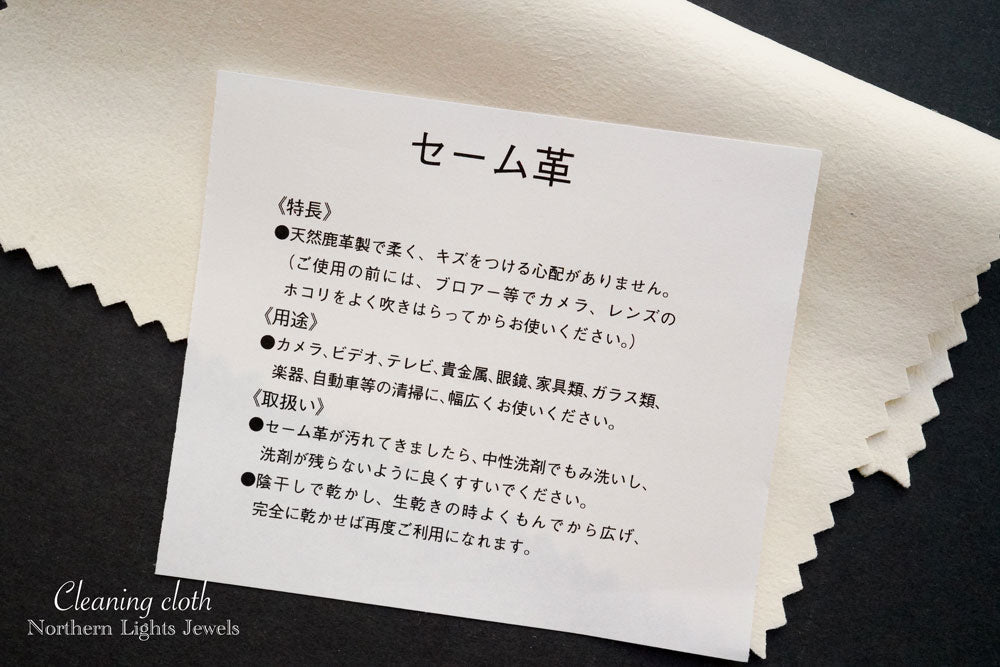 セーム革
《特長》
●天然鹿革製で柔く、キズをつける心配がありません。
（ご使用の前には、ブロアー等でカメラ、レンズの
ホコリをよく吹きはらってからお使いください。）
《用途》
●カメラ、ビデオ、テレビ、貴金属、眼鏡、家具類、ガラス類、
楽器、自動車等の清掃に、幅広くお使いください。
《取扱い》
●セーム革が汚れてきましたら、中性洗剤でもみ洗いし、
洗剤が残らないように良くすすいでください。
●陰干しで乾かし、生乾きの時よくもんでから広げ、
完全に乾かせば再度ご利用になれます。
Cleaning cloth
Northern Lights Jewels